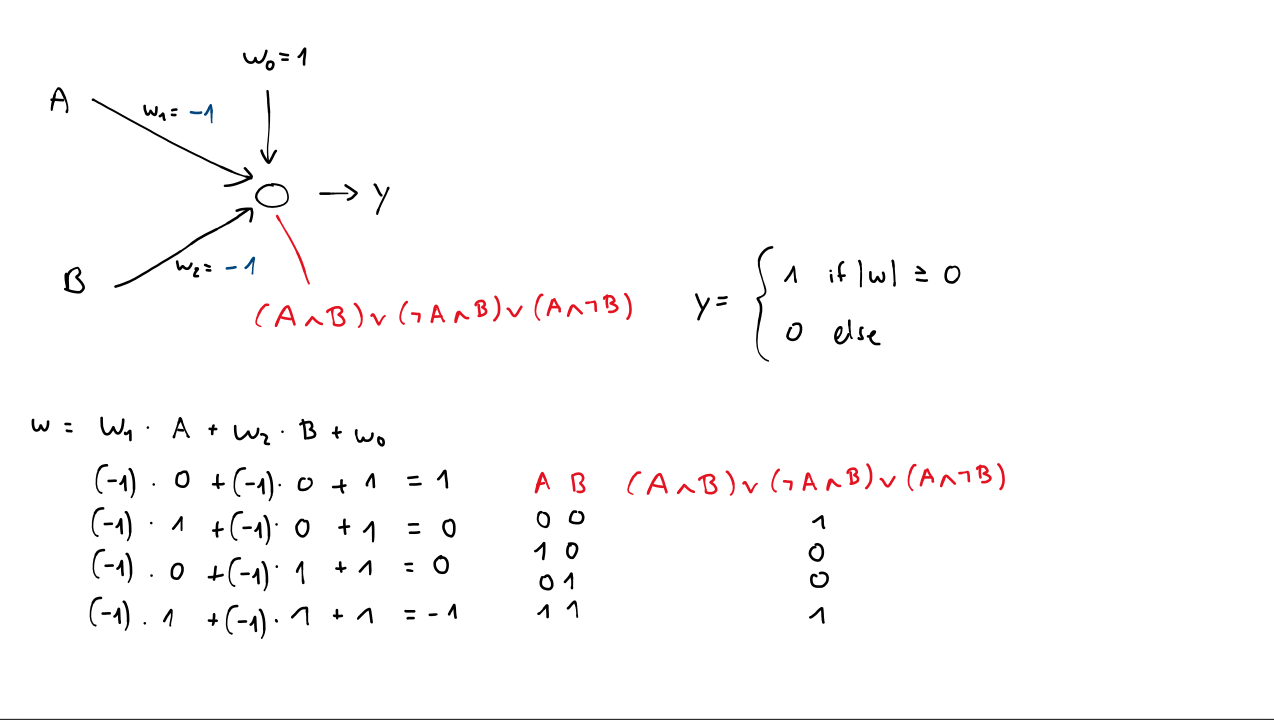 w₀ = 1
A
w₁ = -1
→ y
B
w₂ = -1
(A ∧ B) ∨ (¬A ∧ B) ∨ (A ∧ ¬B)
y = { 1 if |w| ≥ 0
0 else
w = w₁ · A + w₂ · B + w₀
(-1) · 0 + (-1) · 0 + 1 = 1
(-1) · 1 + (-1) · 0 + 1 = 0
(-1) · 0 + (-1) · 1 + 1 = 0
(-1) · 1 + (-1) · 1 + 1 = -1
A B (A ∧ B) ∨ (¬A ∧ B) ∨ (A ∧ ¬B)
0 0 1
1 0 0
0 1 0
1 1 1